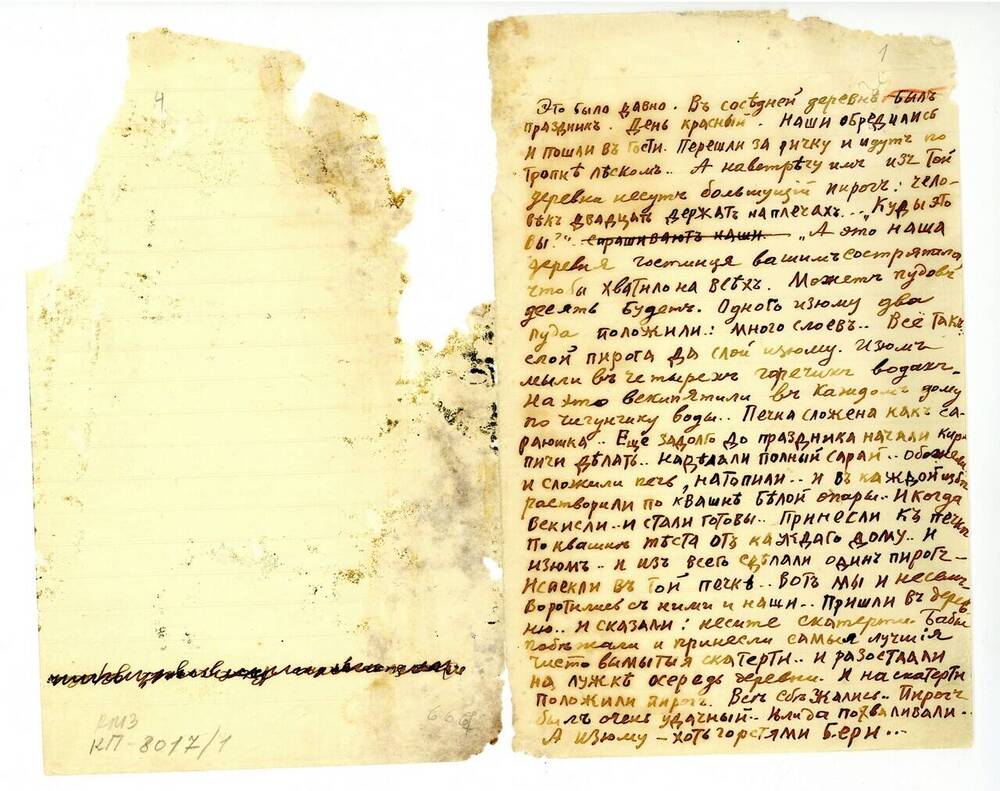 4
КМЗ
КП-8017/1
666
1
Это было давно. Въ сосѣдней деревнѣ былъ
праздникъ. День красный. Наши обредились
и пошли въ гости. Перешли за ричку и идутъ по
тропкѣ лѣскомъ.. А навстрѣчу имъ изъ той
деревни несутъ большущій пирогъ: чело-
вѣкъ двадцать держатъ на плечахъ... „Куды это
вы?“ спрашиваютъ наши. „А это наша
деревня гостинця вашимъ состряпала
чтобы хватило на всѣхъ. Можетъ пудовъ
десять будетъ. Одного изюму два
пуда положили: много слоевъ.. Всё такъ
слой пирога да слой изюму. Изюмъ
мыли въ четырехъ горечихъ водахъ-
на это векипятили въ каждомъ дому
по чигунчику воды.. Печка сложена какъ са-
раюшка.. Ещё задолго до праздника начали кир-
пичи дѣлать.. надѣлали полный сарай..
и сложили печь, натопили.. и въ каждой избѣ
растворили по квашнѣ бѣлой опары.. И когда
векисли.. и стали готовы.. Принесли къ печкѣ
по квашнѣ тѣста отъ каждаго дому.. и
изюмъ.. и изъ всего сдѣлали одинъ пирогъ-
Испекли въ той печкѣ.. Вотъ мы и несемъ
Воротились съ ними и наши.. Пришли въ дерев-
ню.. и сказали: несите скатерти. Бабы
побѣжали и принесли самыя лучшія
чисто вымытыя скатерти.. и разостлали
на лужкѣ осередь деревни. И на скатерти
положили пирогъ. Всѣ сбѣжались.. Пирогъ
былъ очень удачный.. Ѣли да похваливали..
А изюму - хоть горстями бери...